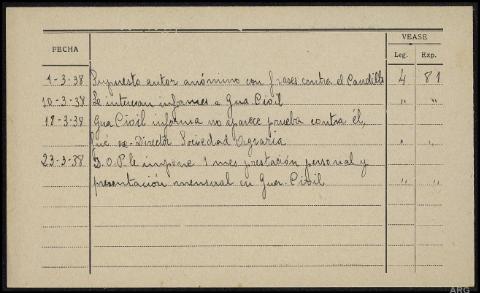 VEASE
FECHA Leg. Exp.
1-3-38 Supuesto autor anónimo con frases contra el Caudillo 4 81
10-3-38 Se interesan informes a Gua. Civil " "
18-3-38 Gua Civil informa no aparece prueba contra él,
fué ex-Directº Sociedad Agraria " "
23-3-38 D.O.P. le impone 1 mes prestación personal y
presentación mensual en Guar. Civil " "
ARG